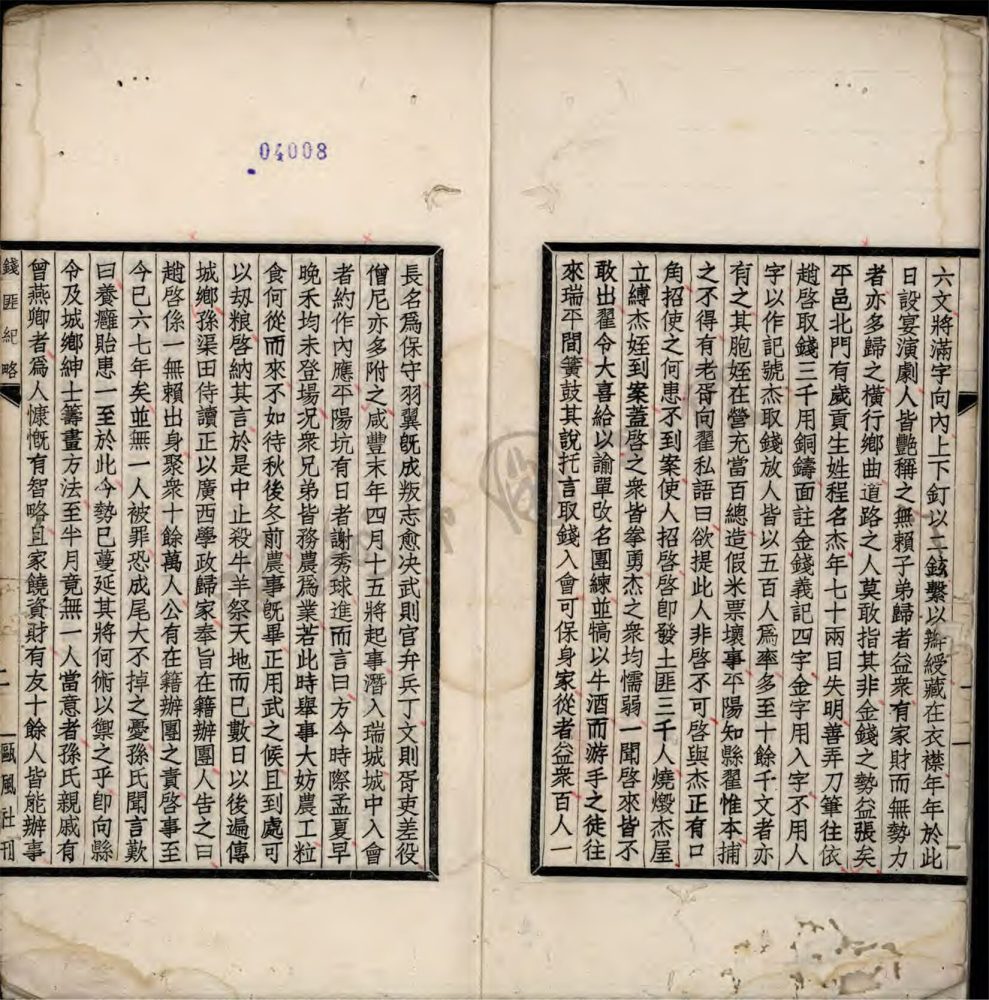 六文將滿字向內上下釘以二鉉繫以辮綬藏在衣襟年年於此
日設宴演劇人皆豔稱之無賴子弟歸者益衆有家財而無勢力
者亦多歸之橫行鄉曲道路之人莫敢指其非金錢之勢益張矣
平邑北門有歲貢生姓程名杰年七十兩目失明善弄刀筆往依
趙啓取錢三千用銅鑄面註金錢義記四字金字用入字不用人
字以作記號杰取錢放人皆以五百人爲率多至十餘千文者亦
有之其胞姪在營充當百總造假米票壞事平陽知縣翟惟本捕
之不得有老胥向翟私語曰欲提此人非啓不可啓與杰正有口
角招使之何患不到案使人招啓啓卽發土匪三千人燒燬杰屋
立縛杰姪到案蓋啓之衆皆拳勇杰之衆均懦弱一聞啓來皆不
敢出翟令大喜給以諭單改名團練並犒以牛酒而游手之徒往
來瑞平間簧鼓其說托言取錢入會可保身家從者益衆百人一
長名爲保守羽翼旣成叛志愈决武則官弁兵丁文則胥吏差役
僧尼亦多附之咸豐末年四月十五將起事潛入瑞城城中入會
者約作內應平陽坑有日者謝秀球進而言曰方今時際孟夏早
晚禾均未登場况衆兄弟皆務農爲業若此時舉事大妨農工粒
食何從而來不如待秋後冬前農事旣畢正用武之候且到處可
以刧粮啓納其言於是中止殺牛羊祭天地而已數日以後遍傳
城鄉孫渠田侍讀正以廣西學政歸家奉旨在籍辦團人告之曰
趙啓係一無賴出身聚衆十餘萬人公有在籍辦團之責啓事至
今已六七年矣並無一人被罪恐成尾大不掉之憂孫氏聞言歎
曰養癰貽患一至於此今勢已蔓延其將何術以禦之乎卽向縣
令及城鄉紳士籌畫方法至半月竟無一人當意者孫氏親戚有
曾燕卿者爲人慷慨有智略且家饒資財有友十餘人皆能辦事
錢匪紀略
二
甌風社刊
04008